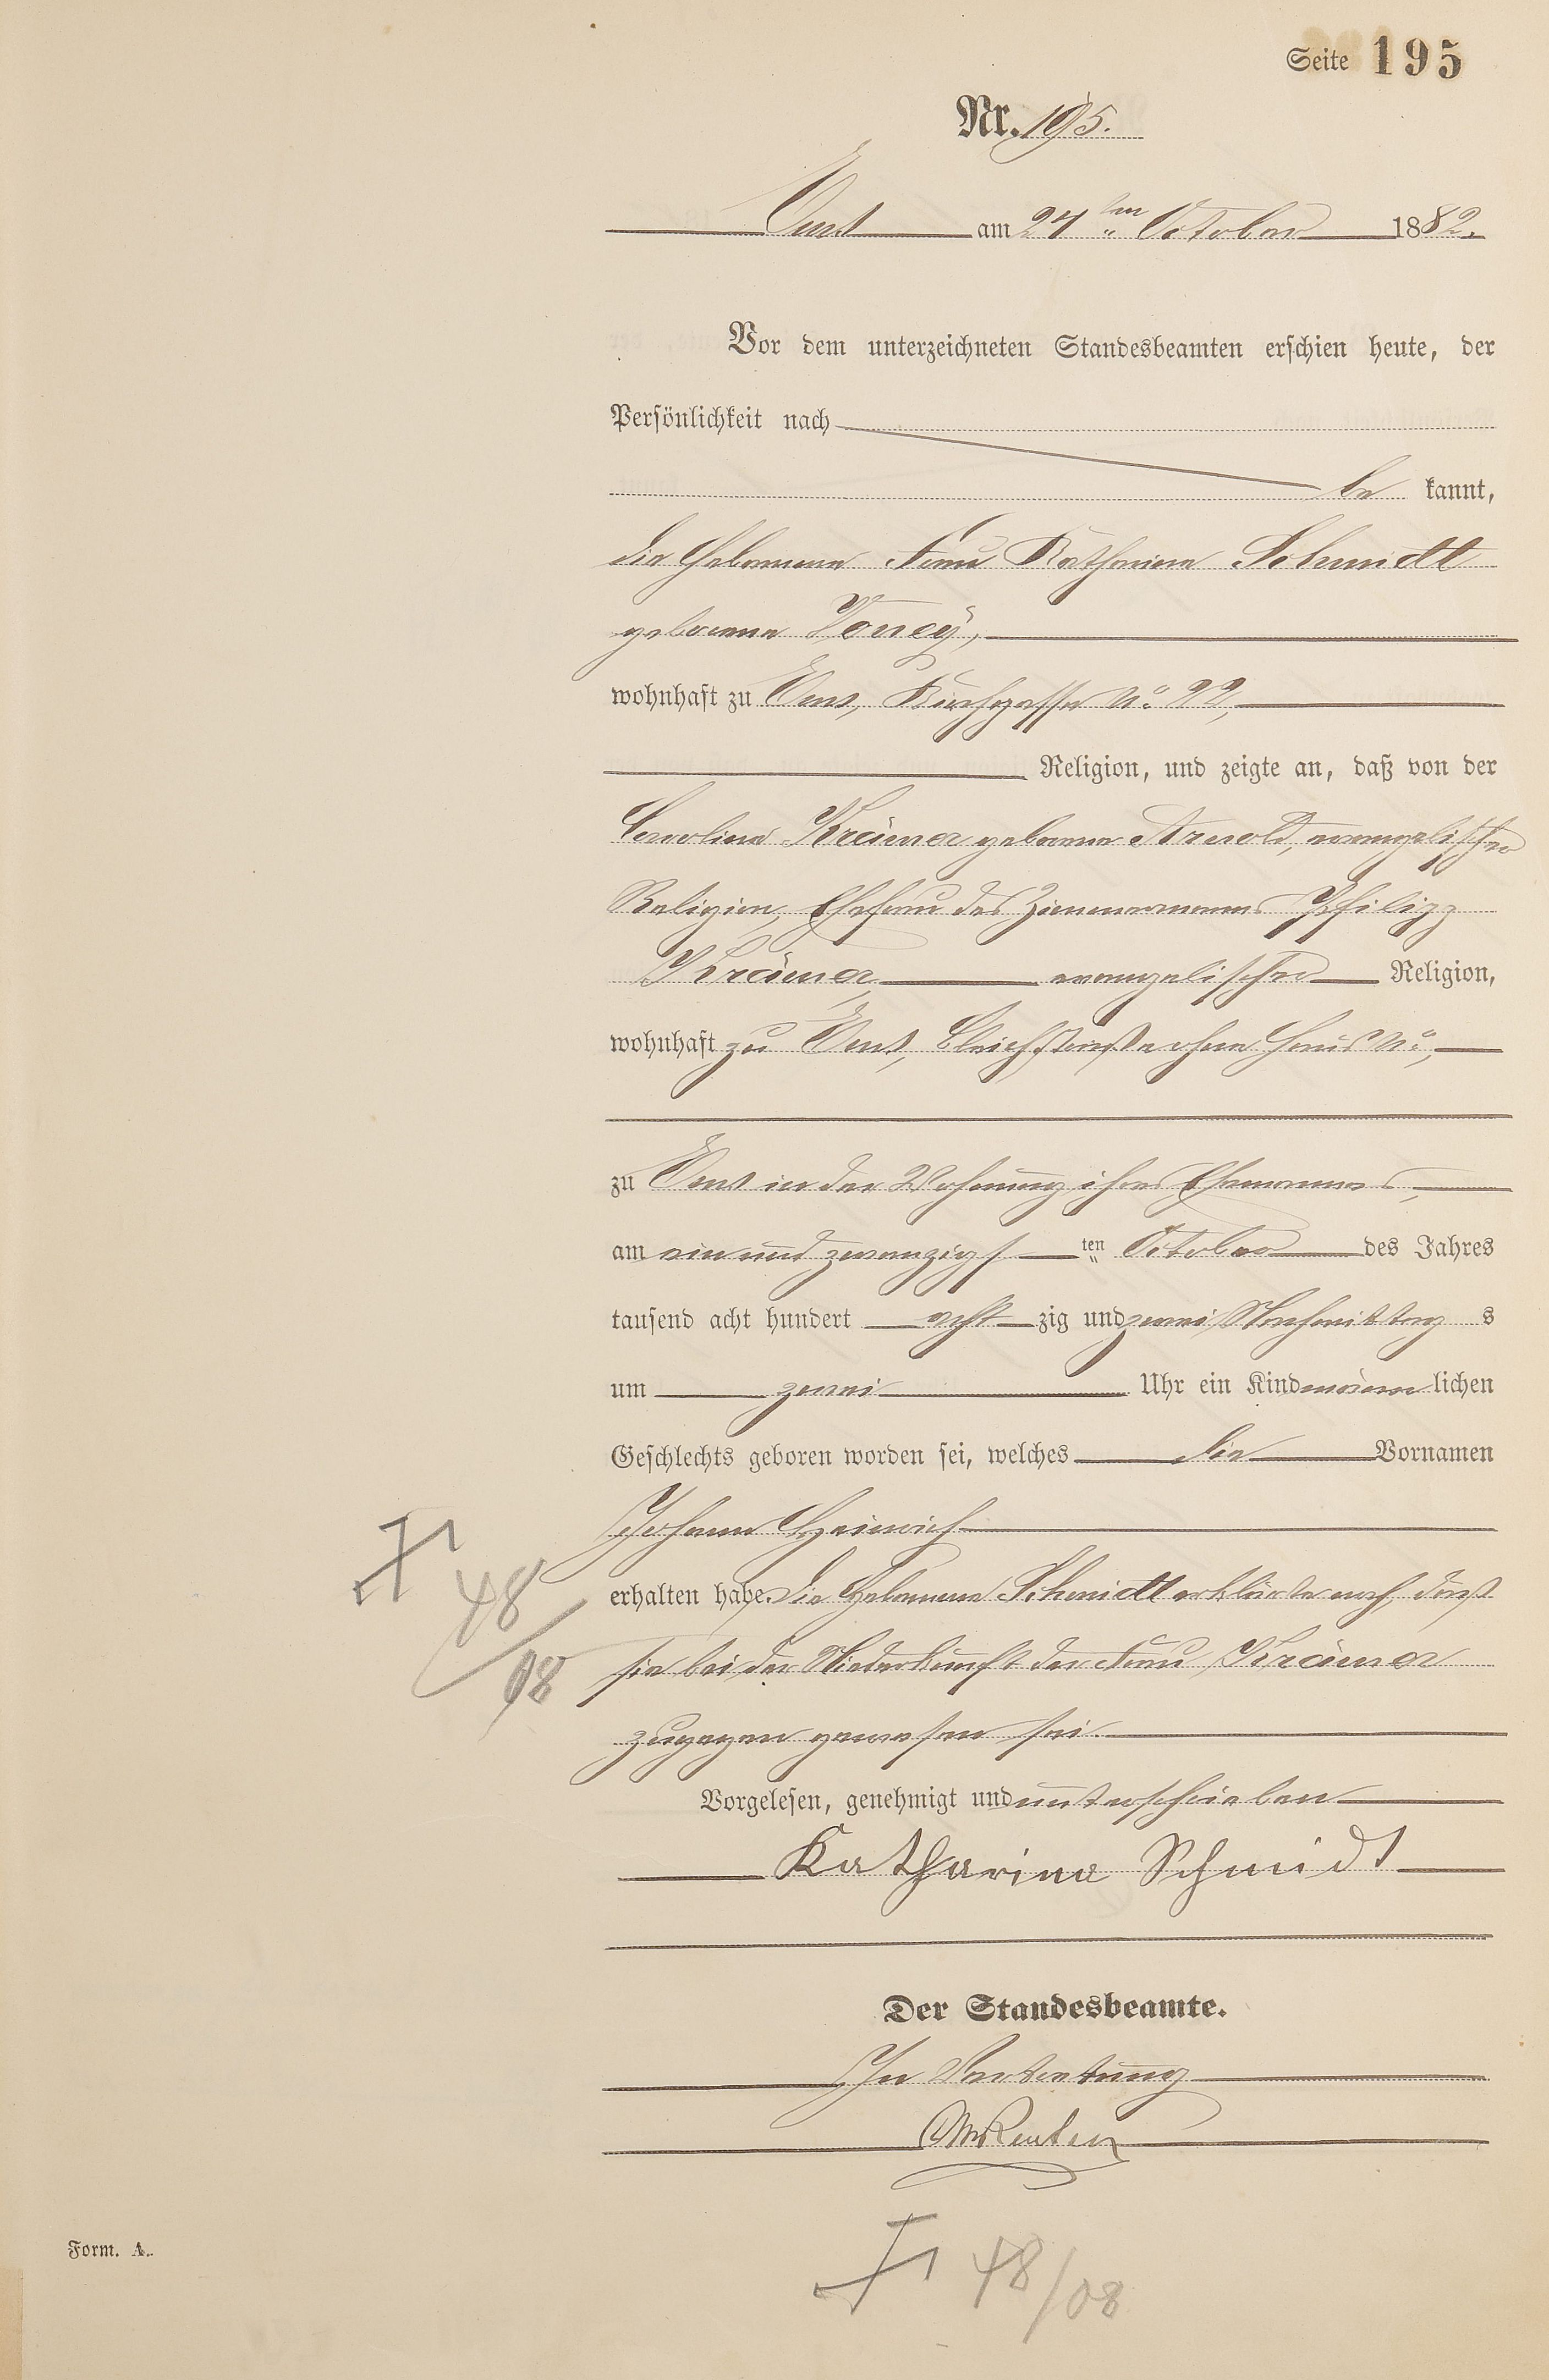 Seite 195
Nr. 195.
Ems am 24 ten October 1882.
Vor dem unterzeichneten Standesbeamten erschien heute, der
Persönlichkeit nach
be kannt,
die Hebamme Frau Katharina Schmidt
geborene
wohnhaft zu Ems, Kirchgasse No. 22,
Religion, und zeigte an, daß von der
Carolina Krämer geborene Arnold, evangelischer
Religion, Ehefrau des Zimmermanns Philipp
Krämer evangelischer Religion,
wohnhaft zu Ems, Bleichstraße ohne Haus No.,
zu Ems in der Wohnung ihres Ehemannes,
am ein und zwanzigs ten October des Jahres
tausend acht hundert acht zig und zwei Nachmittag s
um zwei Uhr ein Kind männ lichen
Geschlechts geboren worden sei, welches die Vornamen
Johann Heinrich
erhalten habe. Die Hebamme Schmidt erklärte noch, daß
sie bei der Niederkunft der Frau Krämer
zugegen gewesen sei.
Vorgelesen, genehmigt und unterschrieben
Katharina Schmidt
Der Standesbeamte.
In Vertretung
48
/
08
48/08
Form. A.